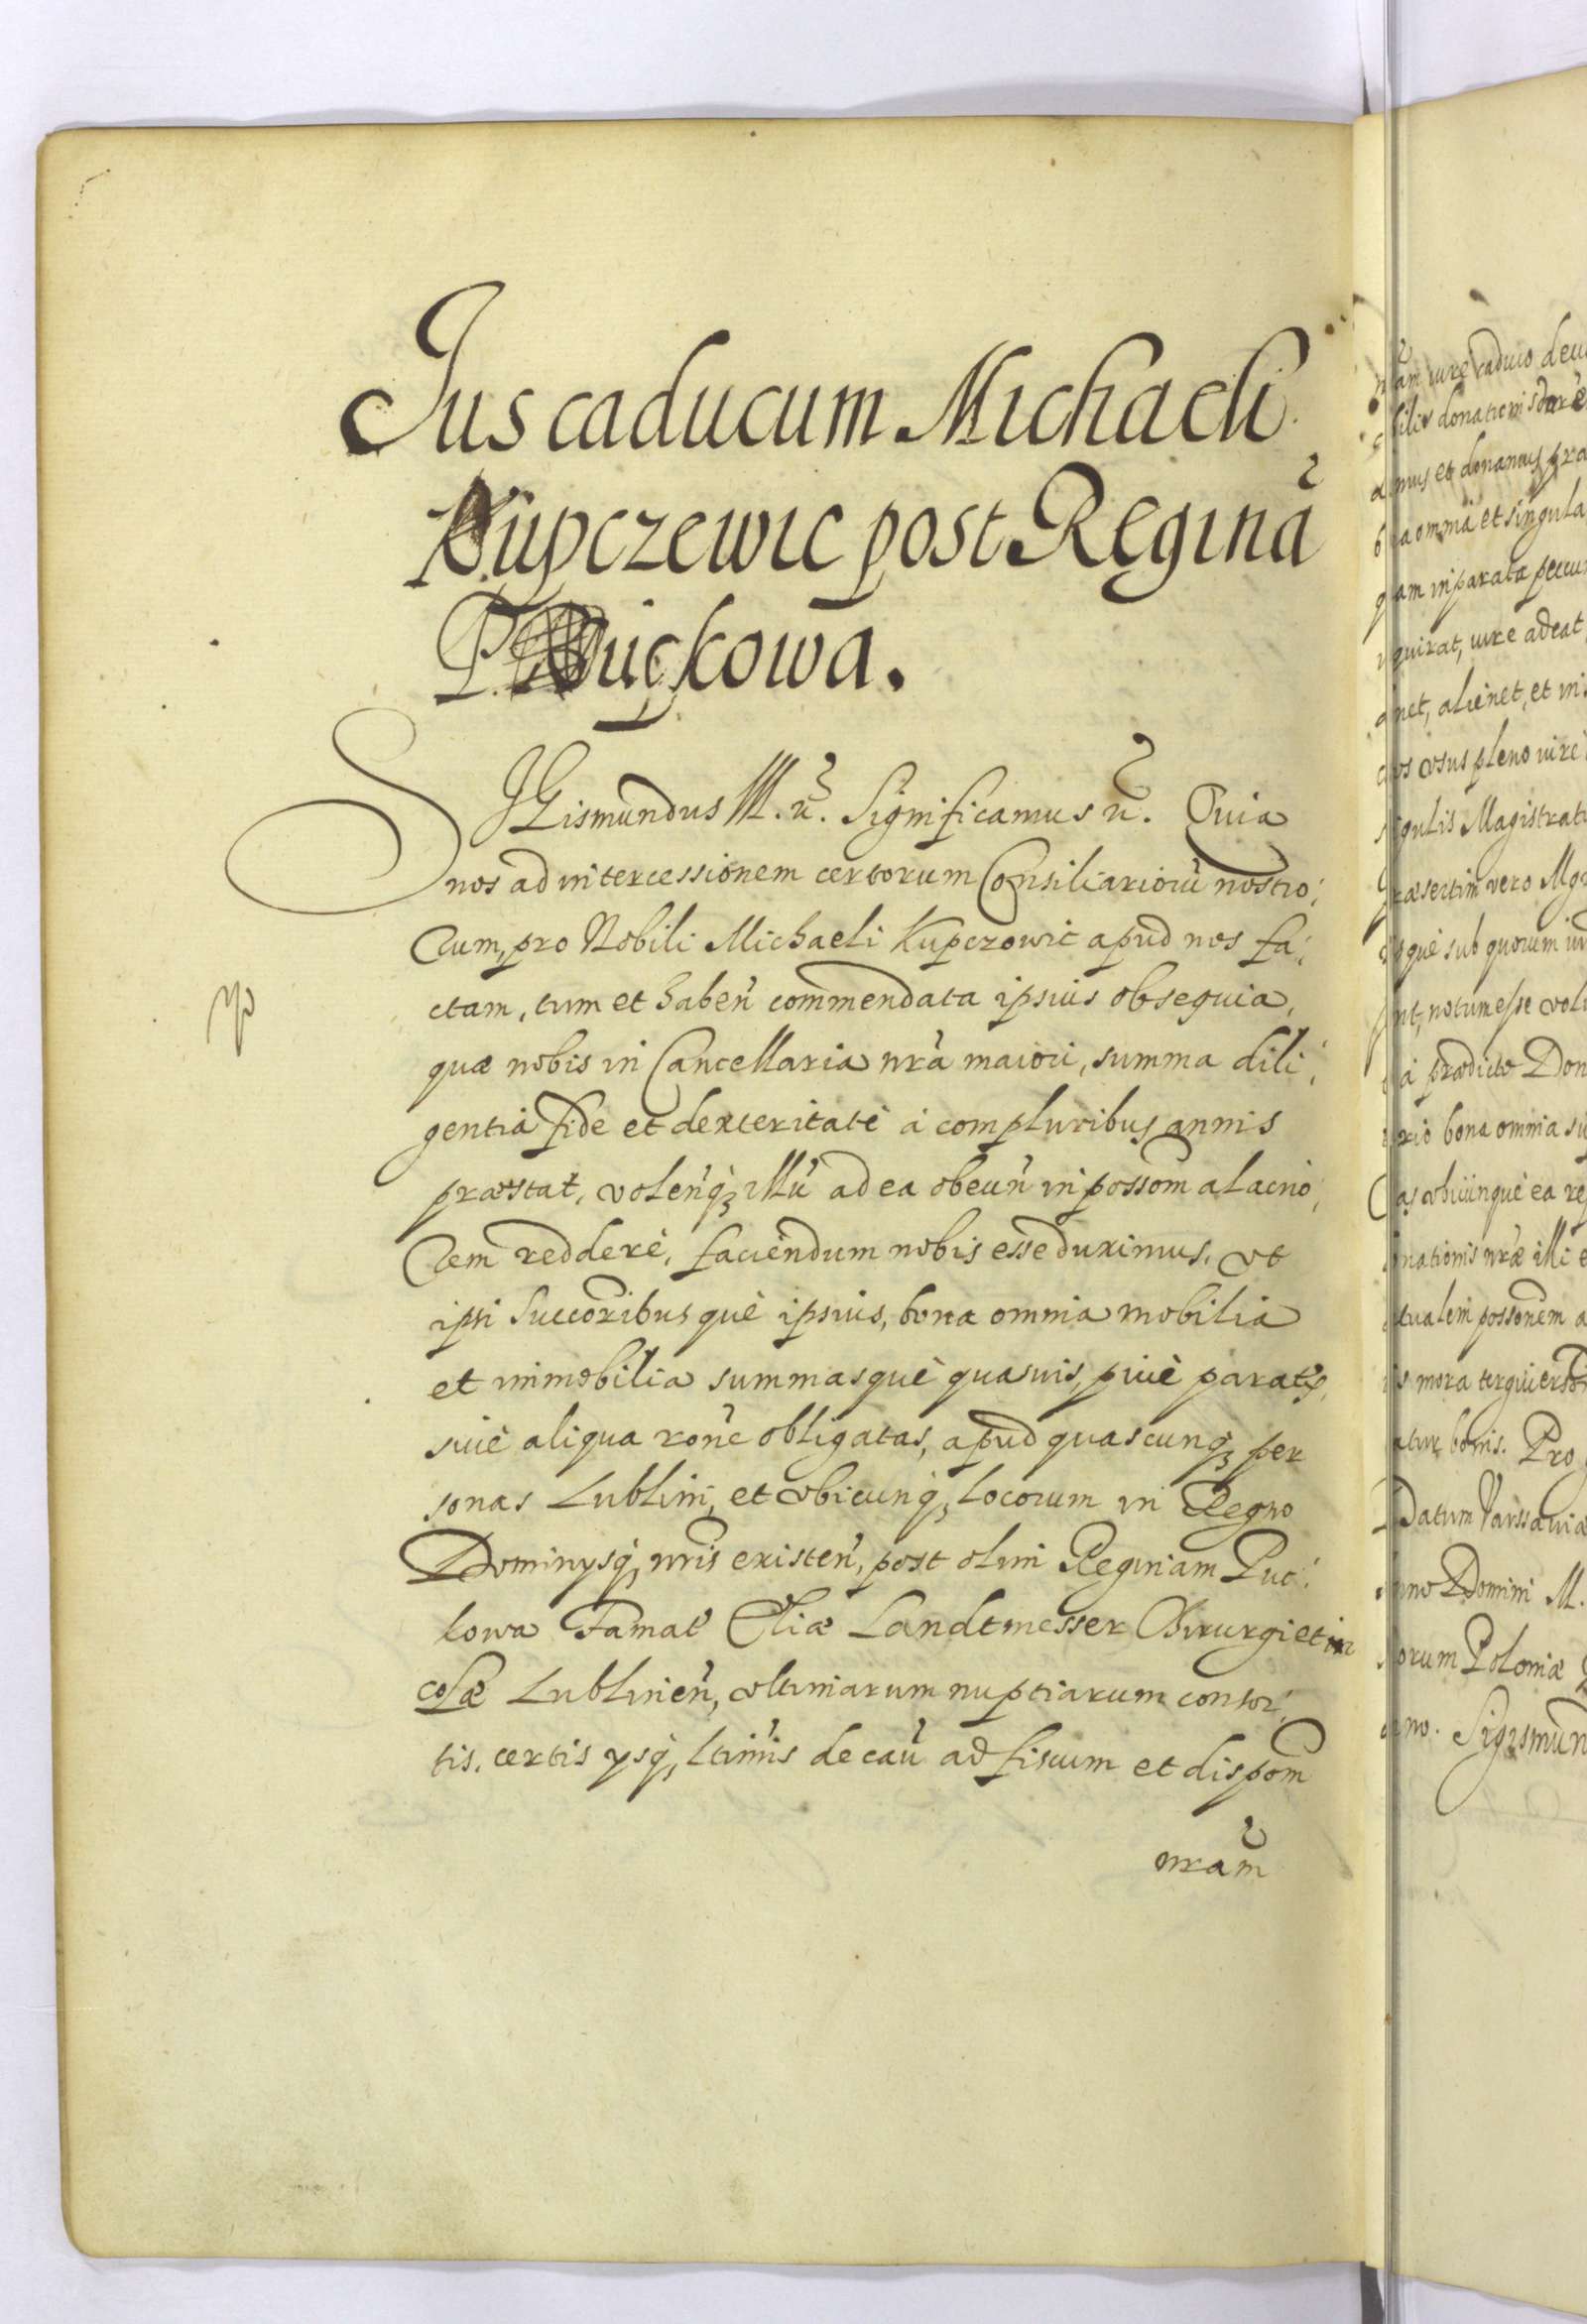 Jus caducum Michaeli
Kupczewic post Reginã
P. Puckowa.
SIGismundus III. ũ. Significamus ũ. Quia
nos ad intercessionem certorum Consiliariorũ nostro:
rum, pro Nobili Michaeli Kupczowic apud nos fa:
ctam, tum et haben̉ commendata ipsius obsequia,
quæ nobis in Cancellaria nr̃a maiori, summa dili:
gentia fide et dexteritate à compluribus annis
præstat, volen̉q; illũ ad ea obeun̉ in possom̃ alacrio:
rem reddere, faciendum nobis esse duximus, vt
ipsi Successoribusque ipsius, bona omnia mobilia
et immobilia summasque quasuis, siue paratas,
siue aliqua ron̉e obligatas, apud quascunq; per
sonas Lublini, et vbicunq; locorum in Regno
Dominijsq; nr̃is existen̉, post olim Reginam Puc:
kowa Famat̉ Eliæ Landtmesser Chirurgi et in
colæ Lublinen̉, vltimarum nuptiarum consor:
tis, certis ijsq; ltimis de cau̓ ad fiscum et dispom̃
nram̃
am iure caduco deuo
bilis donationis
mus et donamus præ
omnia et singula
am in parata pecu
quirat, iure adeat
net, alienet, et in
vsus pleno iure
gulis Magistrat
Præsertim vero
que sub quorum iu
nt, notum esse volu
à prædicto Don
bona omnia su
vbicunque ea re
nationis nr̃æ illi e
tualem possonem a
mora tergiuers
bonis. Pro
Datum Varssauiæ
Domini M.
orum Poloniæ
no. Sigismun